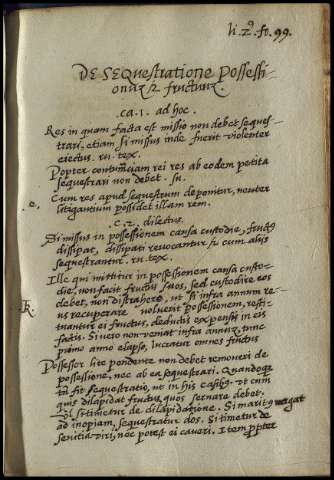 li. 2. fo. 99.
DE SEQuestratione Possessi-
onum & fructuum.
.ca. 1. ad hoc.
Res in quam facta est missio non debet seques-
trari, etiam si missus inde fuerit violenter
eiectus. ru. tex.
Propter contumaciam rei res ab eodem petita
sequestrari non debet. su.
Cum res apud sequestrum deponitur, neuter
litigantium possidet illam rem.
.c. 2. dilectus.
Si missus in possessionem causa custodie, fructus
dissipat, dissipati revocantur & cum aliis
sequestrantur. ru. tex.
Ille qui mittitur in possessionem causa custo-
die, non facit fructus suos, sed custodire eos
debet, non distrahere, ut si infra annum re-
us recuperare voluerit possessionem, resti-
tuantur ei fructus, deductis expensis in eis
factis. Si vero non veniat infra annum, tunc
primo anno elapso, lucratur omnes fructus
R.
Possessor lite pendente non debet removeri de
possessione, nec ab ea sequestrari. Quandoque
tamen fit sequestratio, ut in his casibus. ut cum
quis dilapidat fructus, quos servare debet.
Vel si timetur de dilapidatione. Si maritus vergat
ad inopiam, sequestratur dos. Si timetur de
sevitia viri, nec potest ei caveri. Item propter